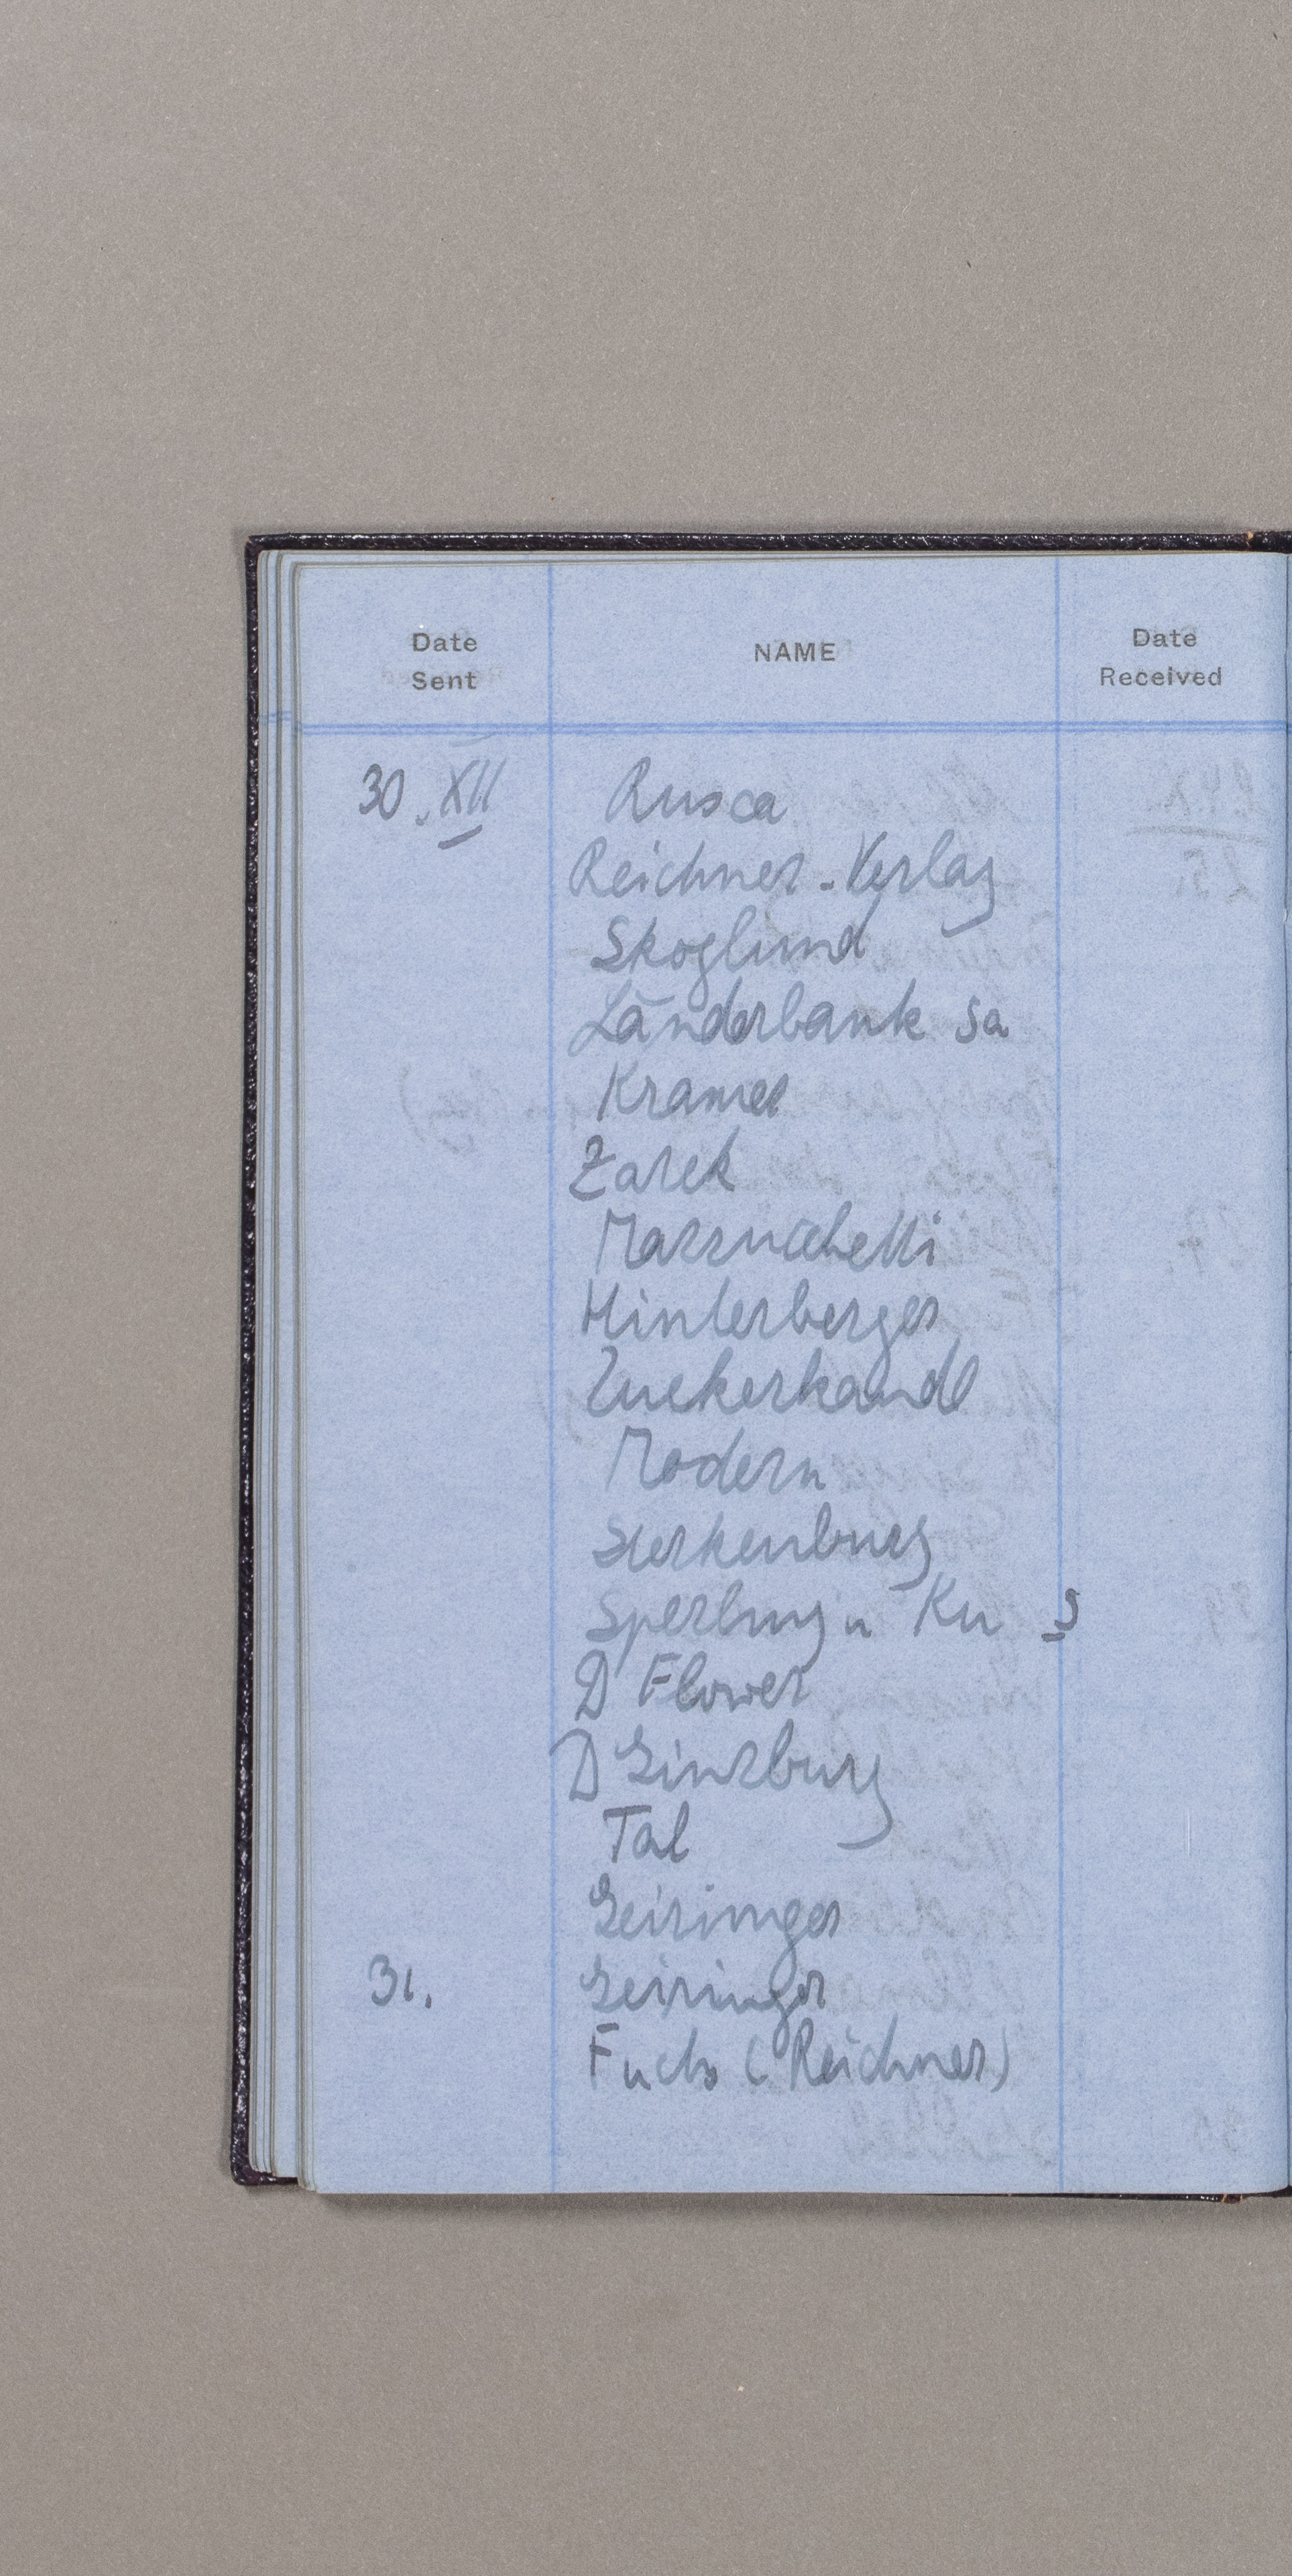 Date Sent NAME Date Received
30. XII Rusca
Reichner-Verlag
Skoglund
Länderbank Sa
Kramer
Zarek
Mazzucchelli
Hinterberger
Zuckerkandl
Modern
Sterkenburg
Sperling u Ku S
D Flower
D Ginzburg
Tal
Geiringer
31. Geiringer
Fuchs (Reichner)